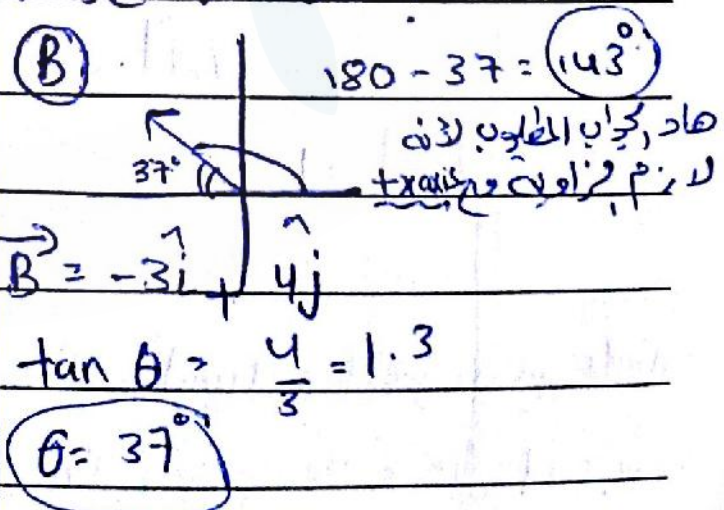 B
180 - 37 = 143°
هاد الجواب المطلوب لأنه
لازم الزاوية مع +x axis
37°
B = -3i + 4j
tan θ = 4/3 = 1.3
θ = 37°